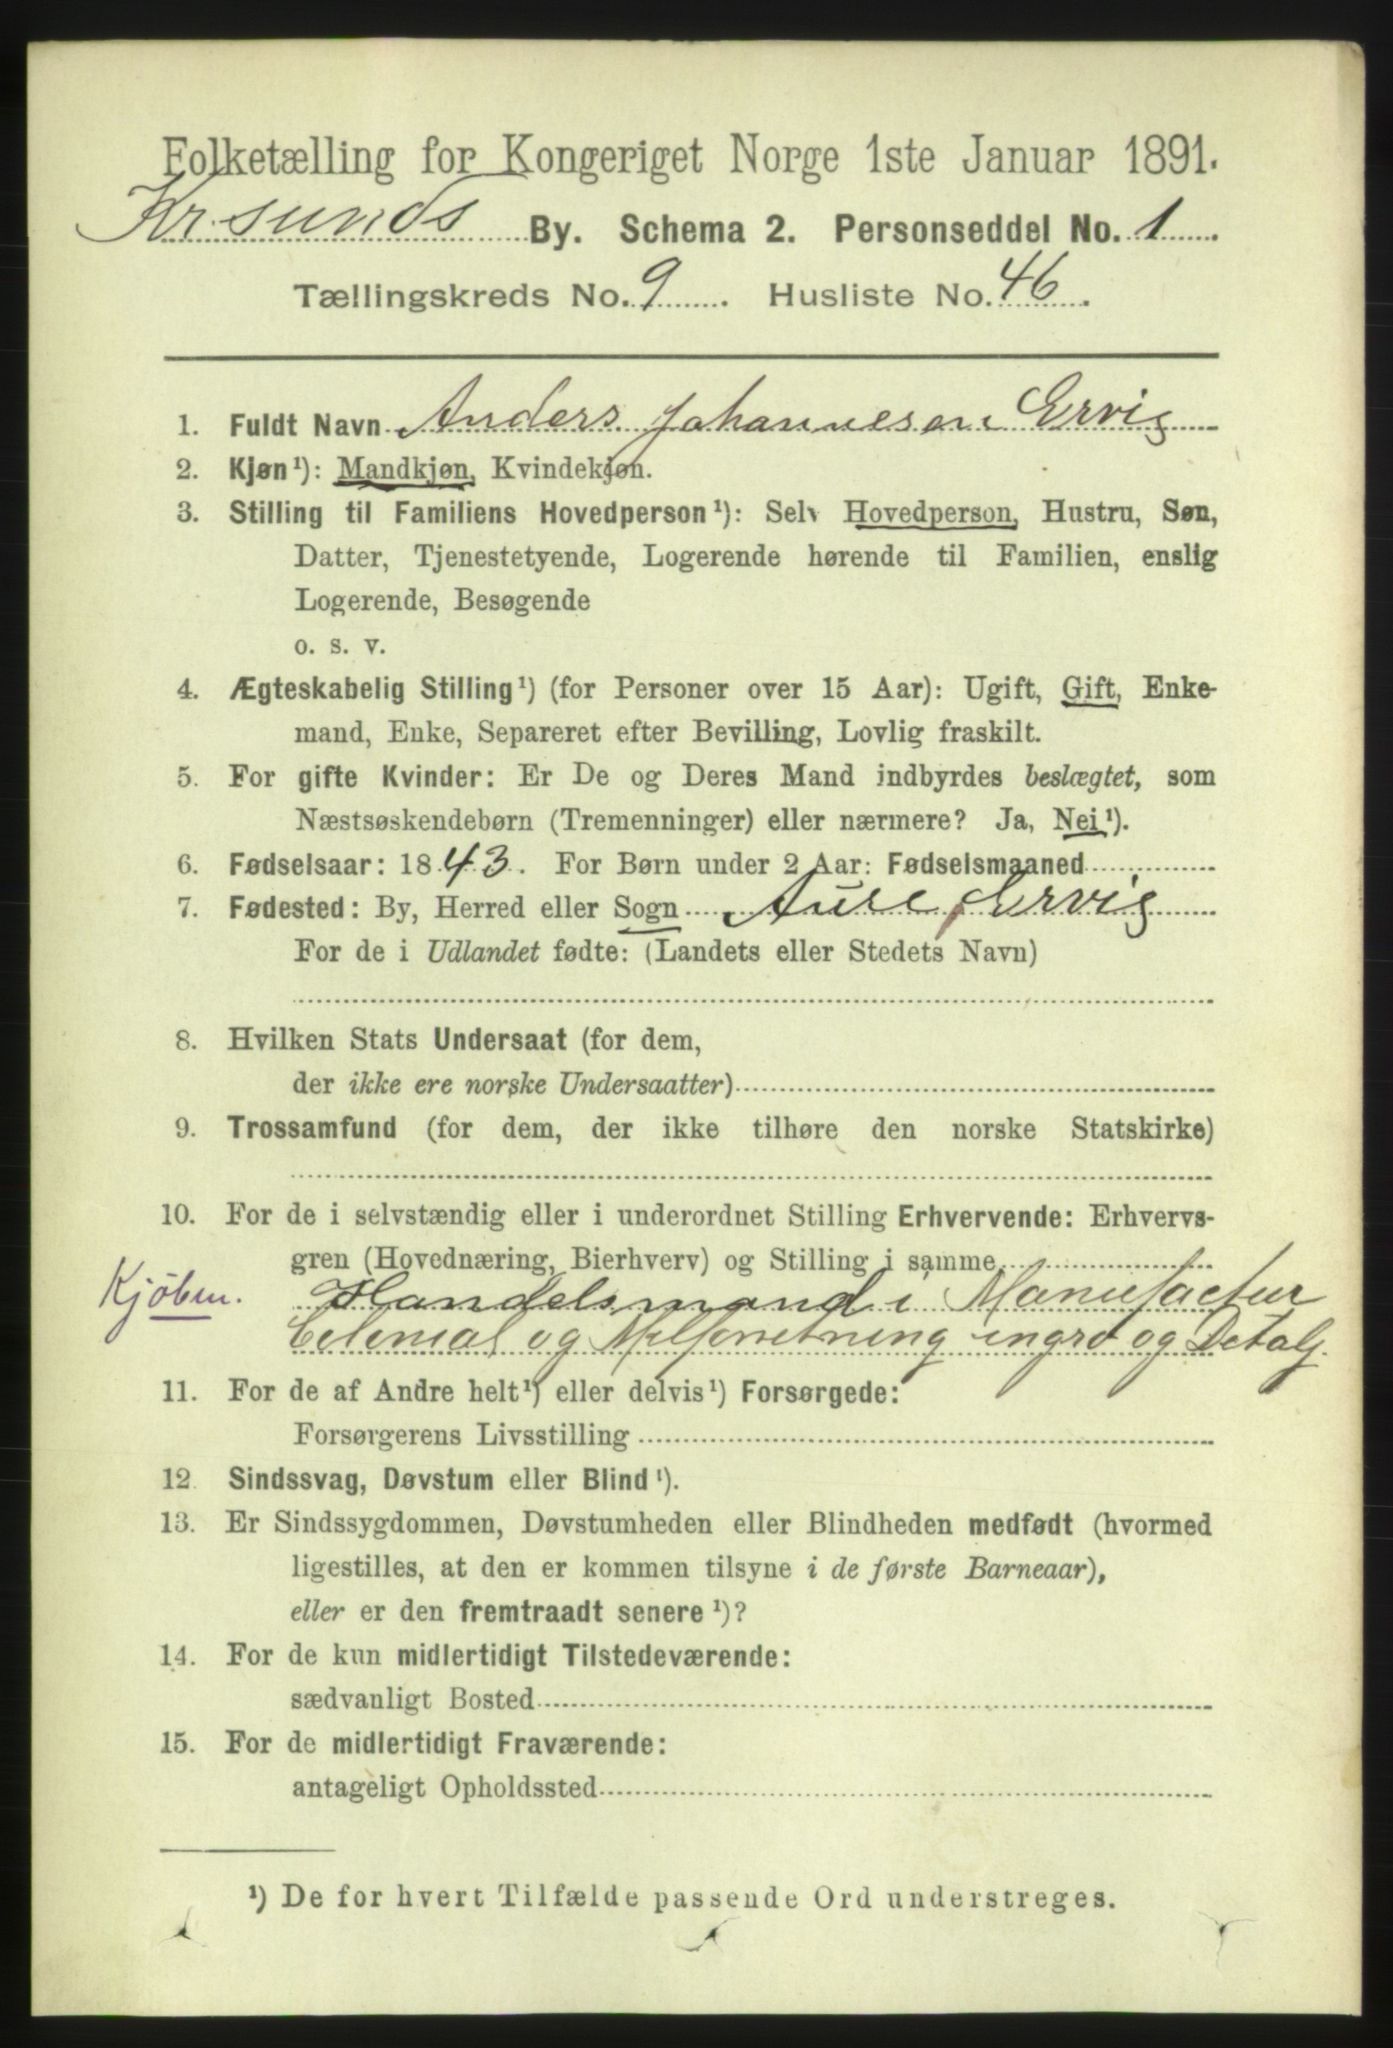 Folketælling for Kongeriget Norge 1ste Januar 1891.
Kr.sunds By. Schema 2. Personseddel No. 1
Tællingskreds No. 9. Husliste No. 46.
1. Fuldt Navn Anders Johannesen Ervig
2. Kjøn¹): Mandkjøn, Kvindekjøn.
3. Stilling til Familiens Hovedperson¹): Selv Hovedperson, Hustru, Søn,
Datter, Tjenestetyende, Logerende hørende til Familien, enslig
Logerende, Besøgende
o. s. v.
4. Ægteskabelig Stilling¹) (for Personer over 15 Aar): Ugift, Gift, Enke-
mand, Enke, Separeret efter Bevilling, Lovlig fraskilt.
5. For gifte Kvinder: Er De og Deres Mand indbyrdes beslægtet, som
Næstsøskendebørn (Tremenninger) eller nærmere? Ja, Nei¹).
6. Fødselsaar: 1843. For Børn under 2 Aar: Fødselsmaaned
7. Fødested: By, Herred eller Sogn Aure, Ervig
For de i Udlandet fødte: (Landets eller Stedets Navn)
8. Hvilken Stats Undersaat (for dem,
der ikke ere norske Undersaatter)
9. Trossamfund (for dem, der ikke tilhøre den norske Statskirke)
10. For de i selvstændig eller i underordnet Stilling Erhvervende: Erhvervs-
gren (Hovednæring, Bierhverv) og Stilling i samme
Kjøbm. Handelsmand i Manufactur
Colonial og Melforretning ingro og Detalj.
11. For de af Andre helt¹) eller delvis¹) Forsørgede:
Forsørgerens Livsstilling
12. Sindssvag, Døvstum eller Blind¹).
13. Er Sindssygdommen, Døvstumheden eller Blindheden medfødt (hvormed
ligestilles, at den er kommen tilsyne i de første Barneaar),
eller er den fremtraadt senere¹)?
14. For de kun midlertidigt Tilstedeværende:
sædvanligt Bosted
15. For de midlertidigt Fraværende:
antageligt Opholdssted
¹) De for hvert Tilfælde passende Ord understreges.